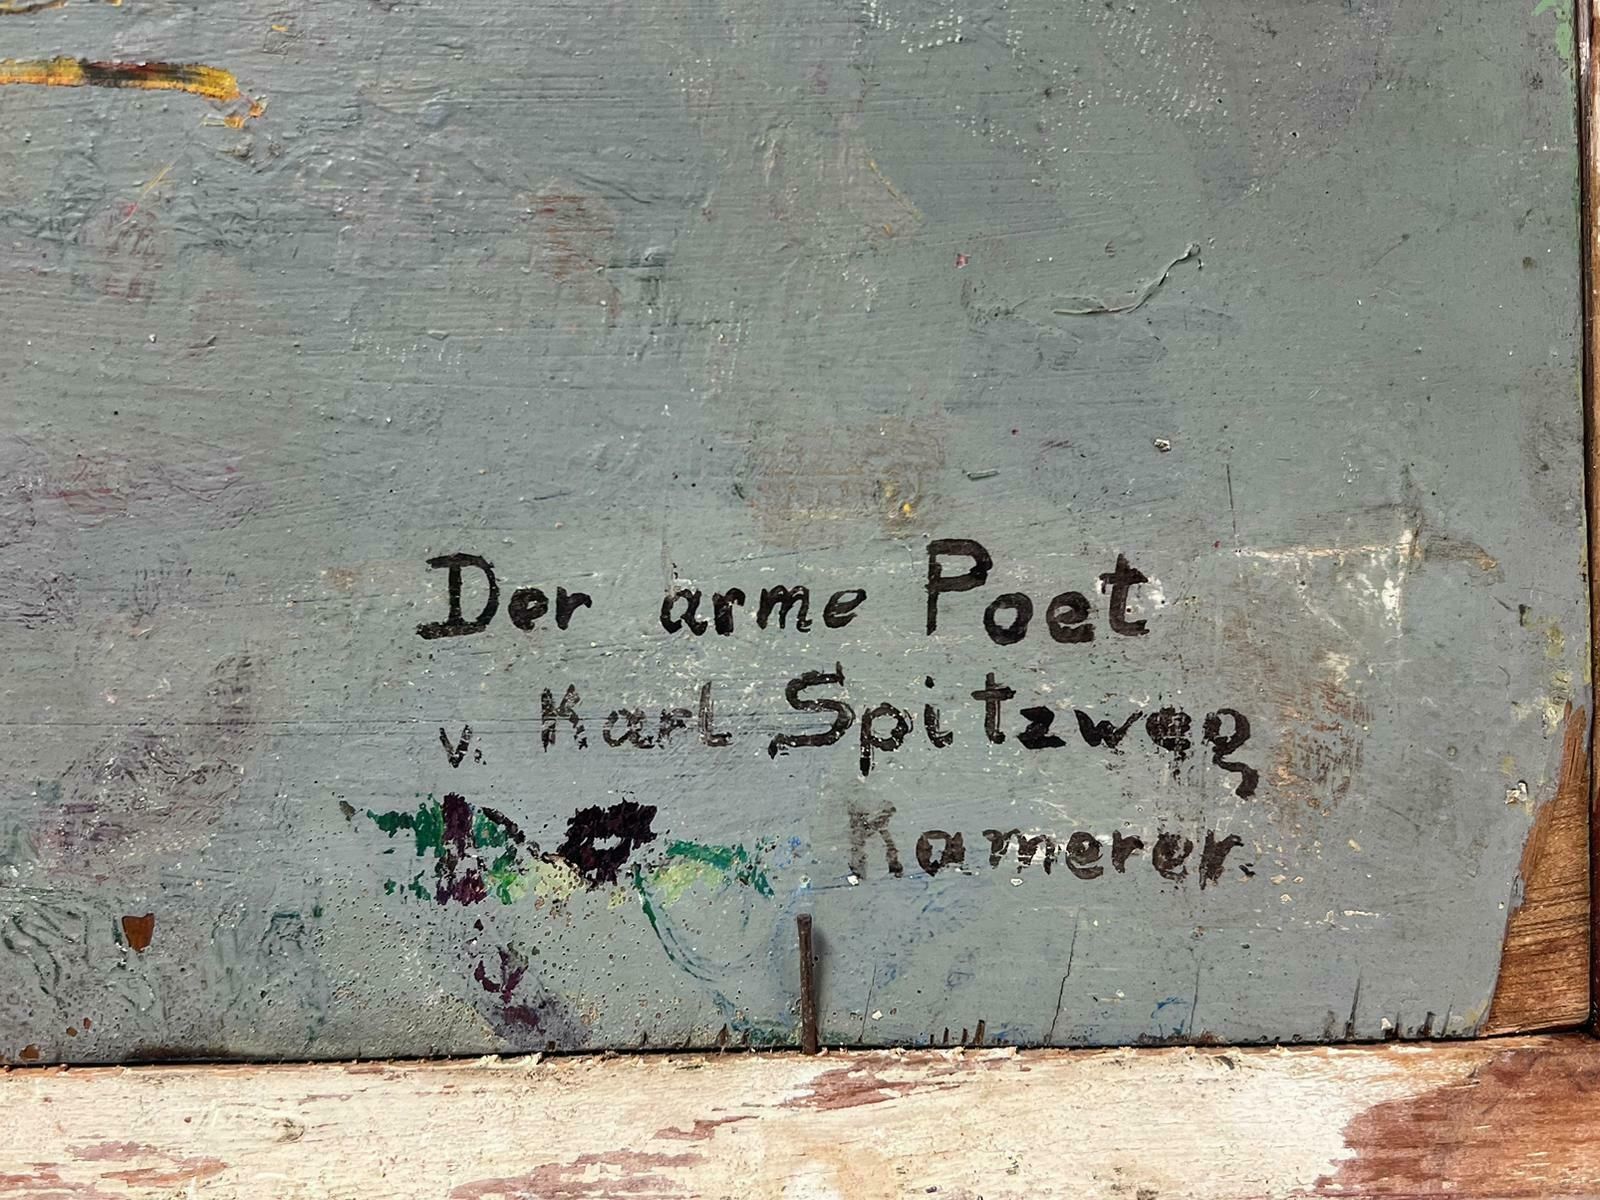 Der arme Poet
v. Karl Spitzweg
Kamerer.